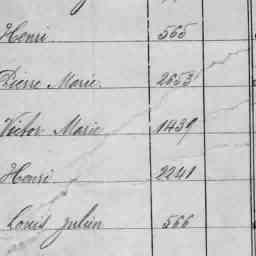 Henri 565
Pierre Marie. 2653
Victor Marie 1439
Henri 2241
Louis Julien 566